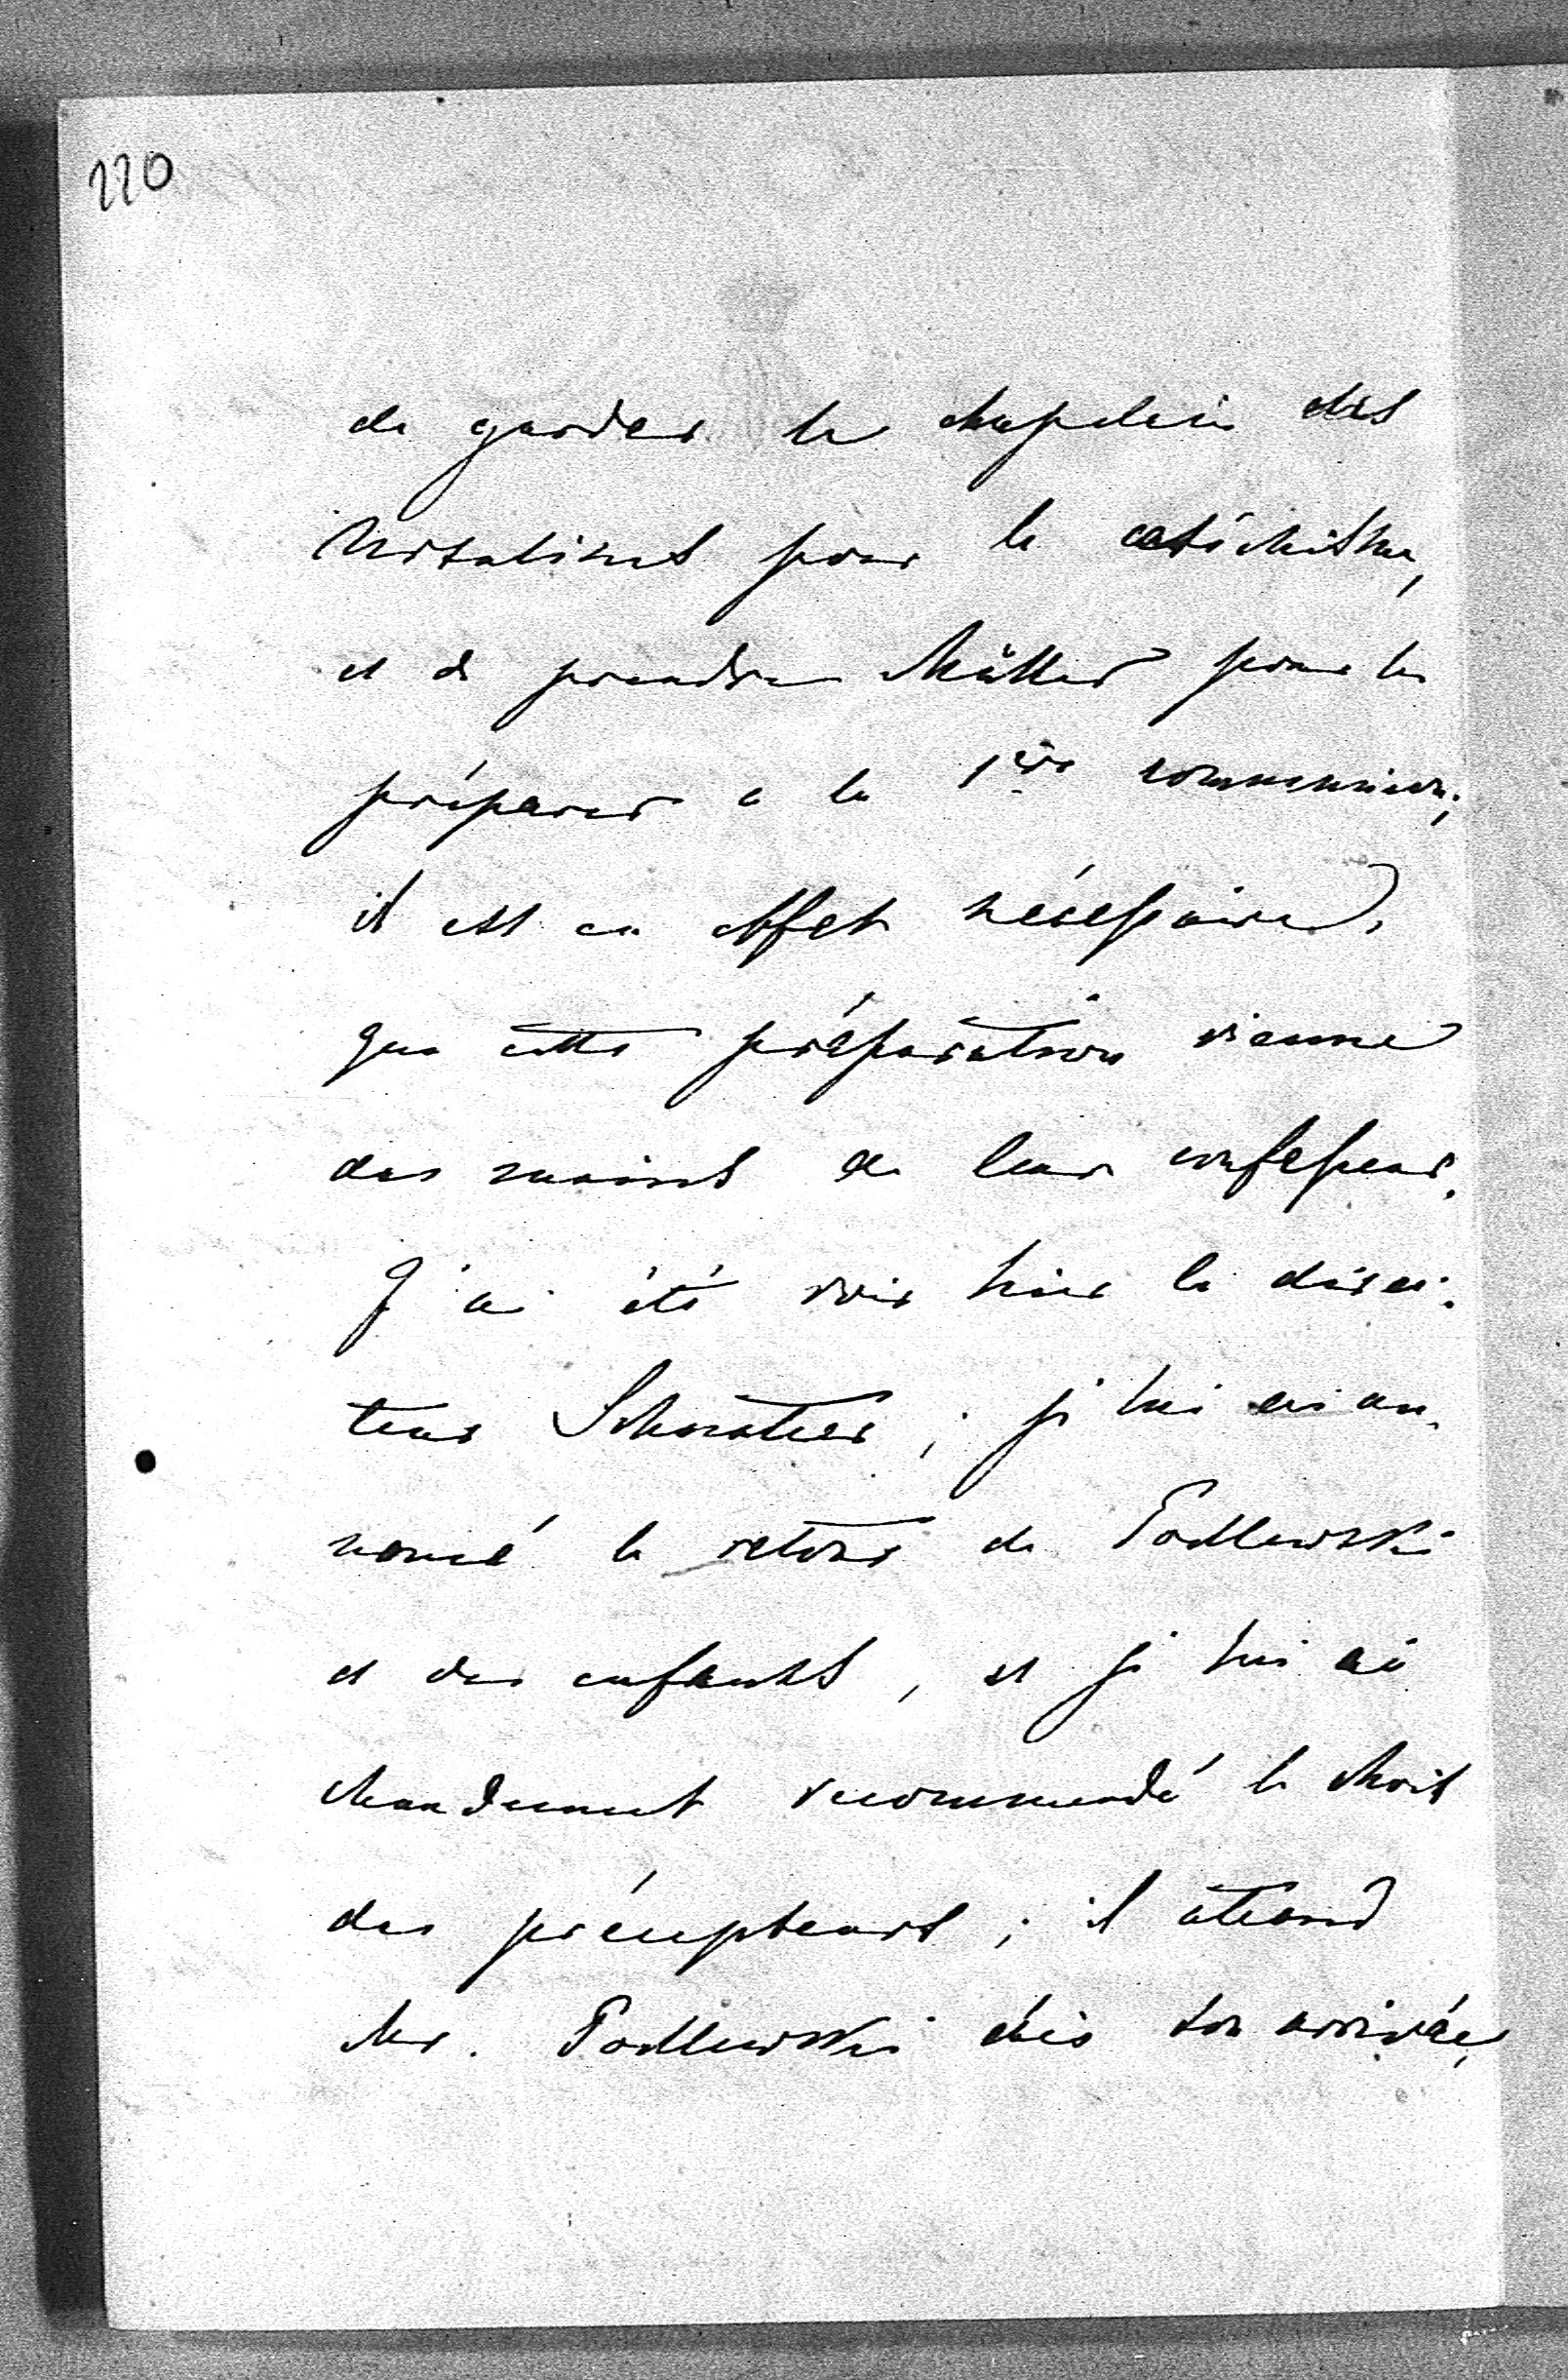 220
de garder le chapelain des
Ursulines pour le catéchisme,
et de prendre Müller pour les
préparer à la 1ère communion;
il est en effet nécessaire,
que cette préparation vienne
des mains de leur confesseur.
J'ai été voir hier le direc-
teur ; je lui ai an-
noncé le retour de Podlewski
et des enfants, et je lui ai
chaudement recommandé le choix
des précepteurs; il attend
Mr. Podlewski dès son arrivée,